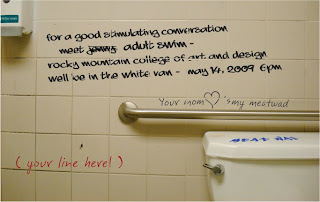 for a good stimulating conversation
meet jenny adult swim -
rocky mountain college of art and design
well be in the white van - may 14, 2009 6pm
Your mom ♡'s my meatwad
( your line here! )